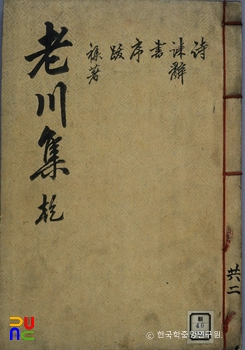 老川集 乾
詩
誄辭
書
序
跋
雜著
共二
朝
한국학중앙연구원